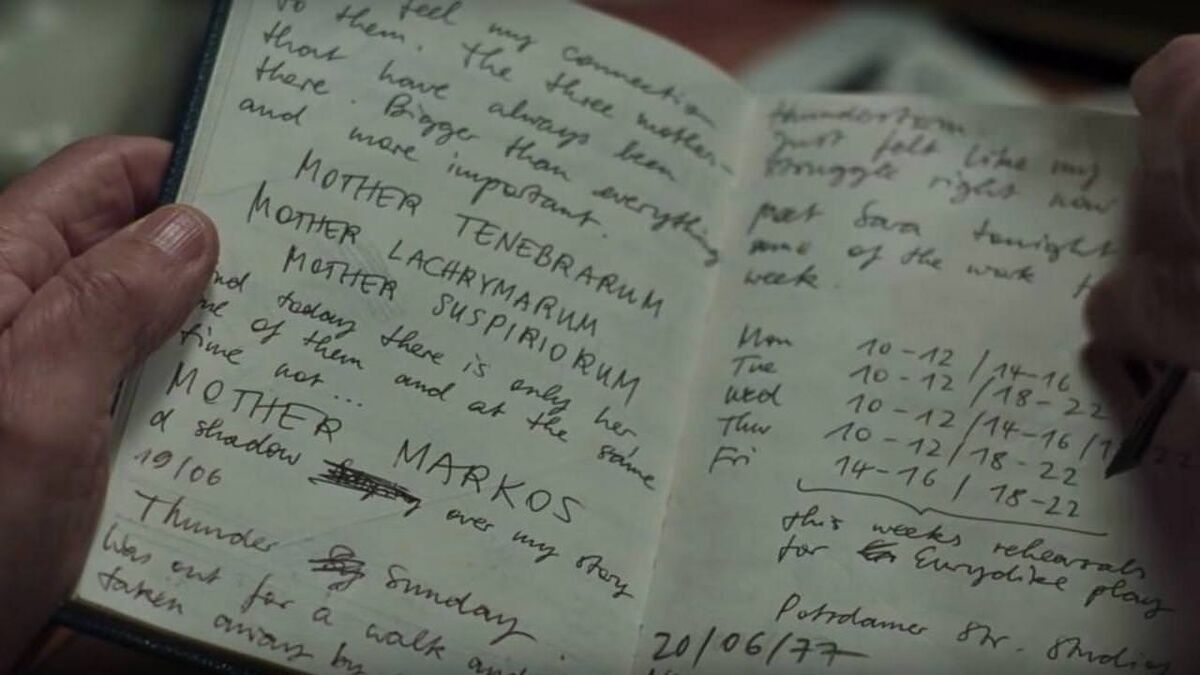 to feel my connection
to them. The three mother-
that have always been
there. Bigger than everything
and more important.
MOTHER TENEBRARUM
MOTHER LACHRYMARUM
MOTHER SUSPIRIORUM
And today there is only her
one of them and at the same
time not...
MOTHER MARKOS
a shadow over my story
19/06
Thunder Sunday.
Was out for a walk and
taken away by
thunderstorm.
Just felt like my
struggle right now
meet Sara tonight
some of the work
week.
Mon 10-12 / 14-16
Tue 10-12 / 18-22
Wed 10-12 / 14-16 / 1 22
Thur 10-12 / 18-22
Fri 14-16 / 18-22
this weeks rehearsals
for Eurydike play
Potsdamer Str. Studios
20/06/77